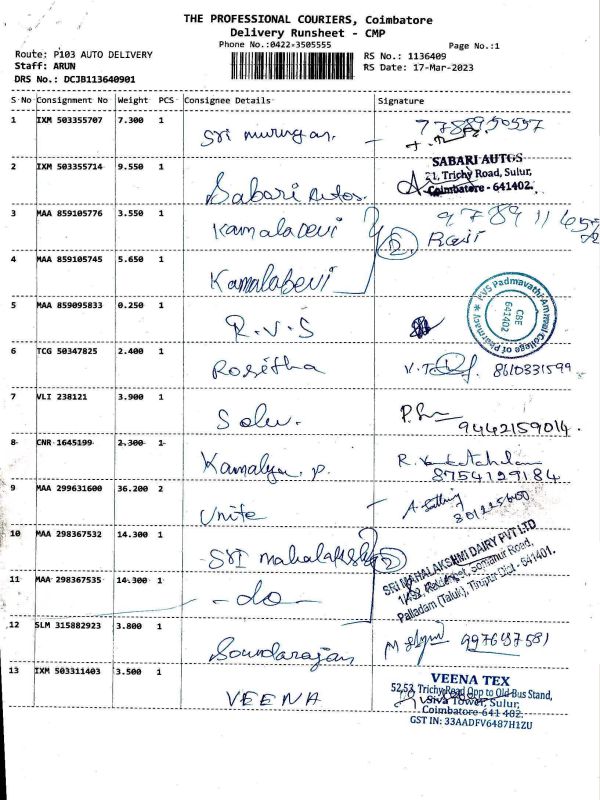 THE PROFESSIONAL COURIERS, Coimbatore
Delivery Runsheet - CMP
Phone No.:0422-3505555
Page No.:1
Route: P103 AUTO DELIVERY
RS No.: 1136409
Staff: ARUN
RS Date: 17-Mar-2023
DRS No.: DCJB113640901
S No Consignment No Weight PCS Consignee Details Signature
1 IXM 503355707 7.300 1 Sri murugan.
2 IXM 503355714 9.550 1 Sabari Autos.
SABARI AUTOS
21, Trichy Road, Sulur,
Coimbatore - 641402.
3 MAA 859105776 3.550 1 Kamaladevi
2 Ravi
4 MAA 859105745 5.650 1 Kamaladevi
5 MAA 859095833 0.250 1 R.V.S
PVS Padmavathi Ammal College of Pharmacy
CBE
641402
6 TCG 50347825 2.400 1 Rositha 8610331599
7 VLI 238121 3.900 1 9442159014.
8 CNR 1645199 2.300 1 R. Venkatachalam
8754129184
9 MAA 299631600 36.200 2 Unite
10 MAA 298367532 14.300 1 Sri mahalakshmi 2
SRI MAHALAKSHMI DAIRY PVT LTD
Somanur Road,
Palladam (Taluk), Tirupur Dist - 641401.
11 MAA 298367535 14.300 1 - do -
12 SLM 315882923 3.800 1 Soundarajan
13 IXM 503311403 3.500 1 VEENA
VEENA TEX
52,53, Trichy Road Opp to Old Bus Stand,
Siva Tower, Sulur,
Coimbatore-641 402.
GST IN: 33AADFV6487H1ZU